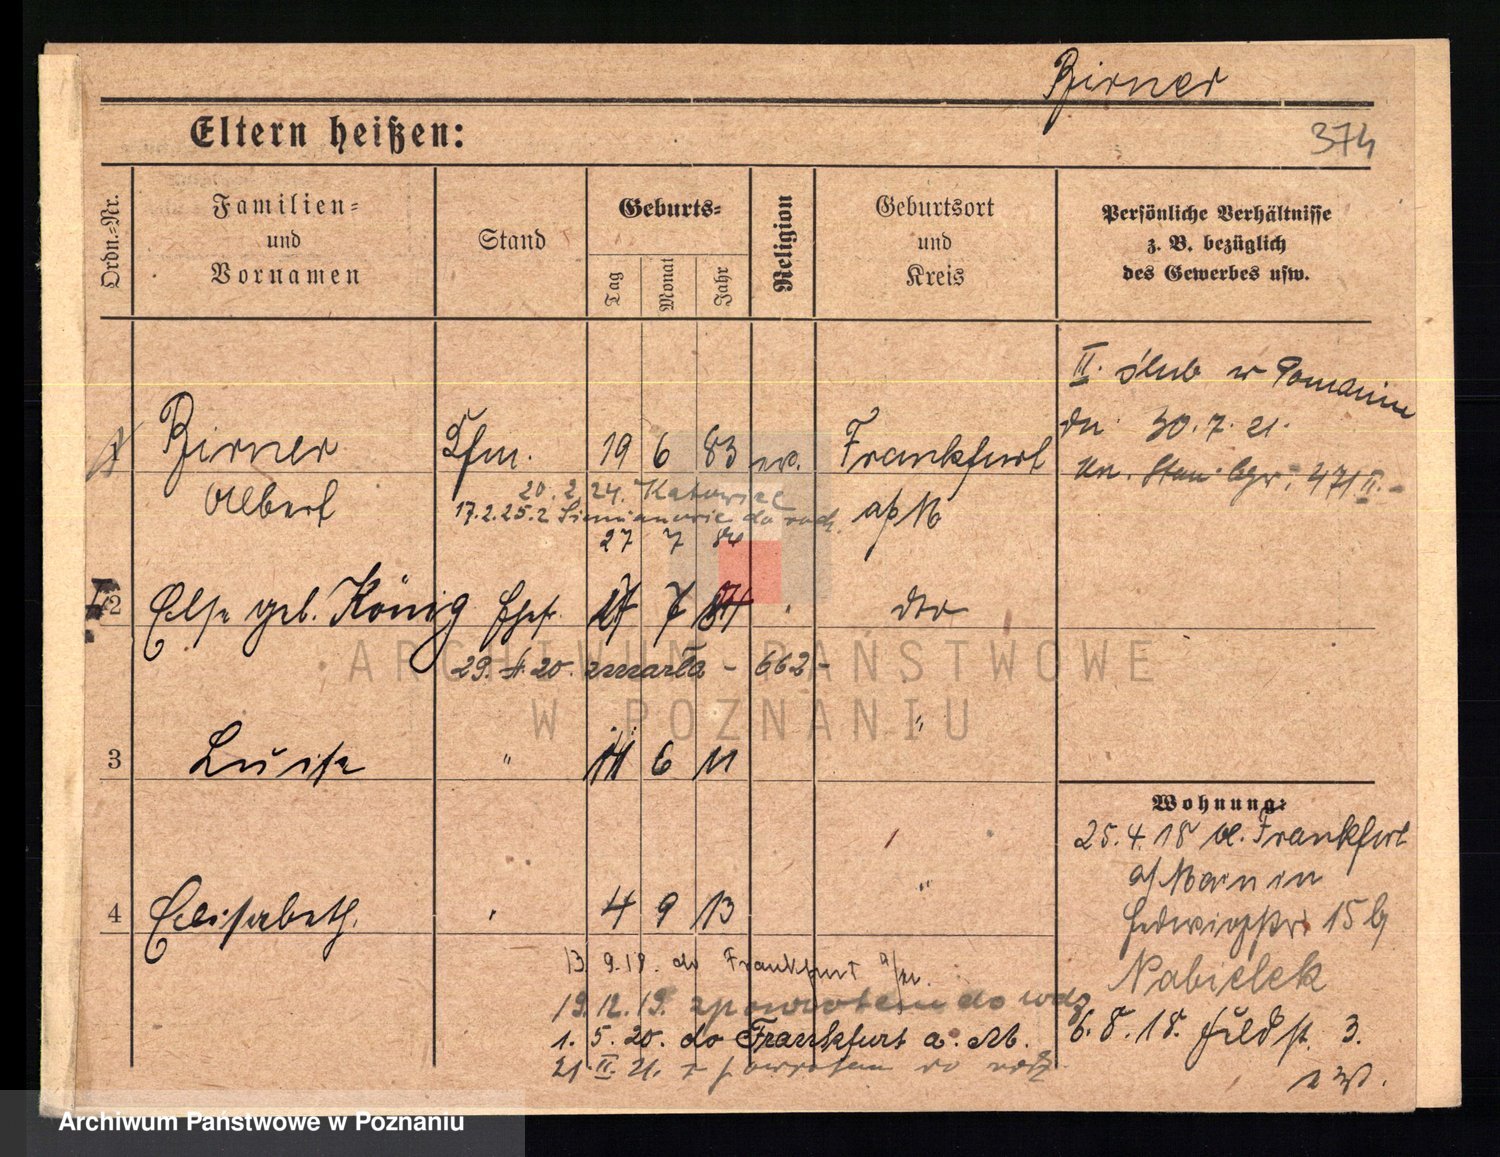 Birner
Eltern heißen:
374
Ordn.-Nr.
Familien- und Vornamen
Stand
Geburts-
Tag
Monat
Jahr
Religion
Geburtsort und Kreis
Persönliche Verhältnisse
z. B. bezüglich
des Gewerbes usw.
II. ślub w Poznaniu
dn. 30.7.21.
Birner Kfm. 19 6 83 ev. Frankfurt
Albert
a/M
20.2.24. Katowice
17.2.25. z Siemianowic do
27 7
2 Else geb. König Ehefr. 27 7 84 dto
29. 4. 20. zmarła - 662 -
ARCHIWUM PAŃSTWOWE
W POZNANIU
3 Luise " 14 6 11 "
Wohnung:
25.4.18 Frankfurt
a/Main in
Hedwigstr. 15 b
4 Elisabeth. 4 9 13 "
Nabielek
13.9.18. do Frankfurt a/M.
19.12.19. z powrotem do
1. 5. 20. do Frankfurt a. M.
21. II. 21. z powrotem do
6.8.18. Feldstr. 3.
Archiwum Państwowe w Poznaniu